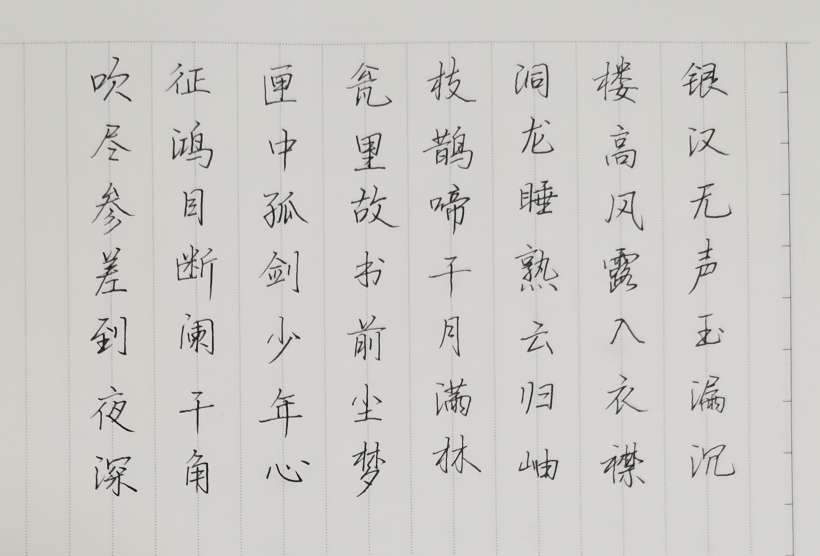 银汉无声玉漏沉
楼高风露入衣襟
洞龙睡熟云归岫
枝鹊啼干月满林
瓮里故书前尘梦
匣中孤剑少年心
征鸿目断阑干角
吹尽参差到夜深